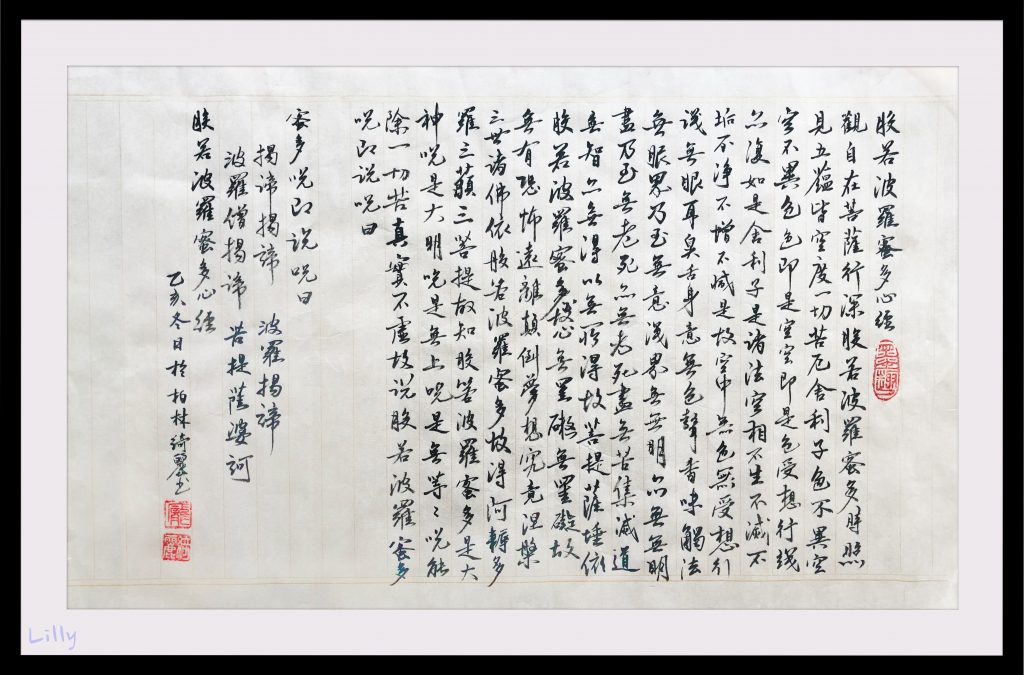 般若波羅蜜多心經
觀自在菩薩行深般若波羅蜜多時照
見五蘊皆空度一切苦厄舍利子色不異空
空不異色色即是空空即是色受想行識
亦復如是舍利子是諸法空相不生不滅不
垢不淨不增不減是故空中無色無受想行
識無眼耳鼻舌身意無色聲香味觸法
無眼界乃至無意識界無無明亦無無明
盡乃至無老死亦無老死盡無苦集滅道
無智亦無得以無所得故菩提薩埵依
般若波羅蜜多故心無罣礙無罣礙故
無有恐怖遠離顛倒夢想究竟涅槃
三世諸佛依般若波羅蜜多故得阿耨多
羅三藐三菩提故知般若波羅蜜多是大
神咒是大明咒是無上咒是無等々咒能
除一切苦真實不虛故說般若波羅蜜多
咒即說咒曰
蜜多咒即說咒曰
揭諦揭諦 波羅揭諦
波羅僧揭諦 菩提薩婆訶
般若波羅蜜多心經
乙亥冬日於柏林綺墨
Lilly